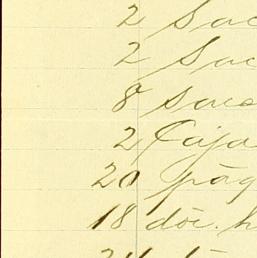 2 Sac
2 Sac
8 saco
2 Caja
20 pag
18 doc. h
24